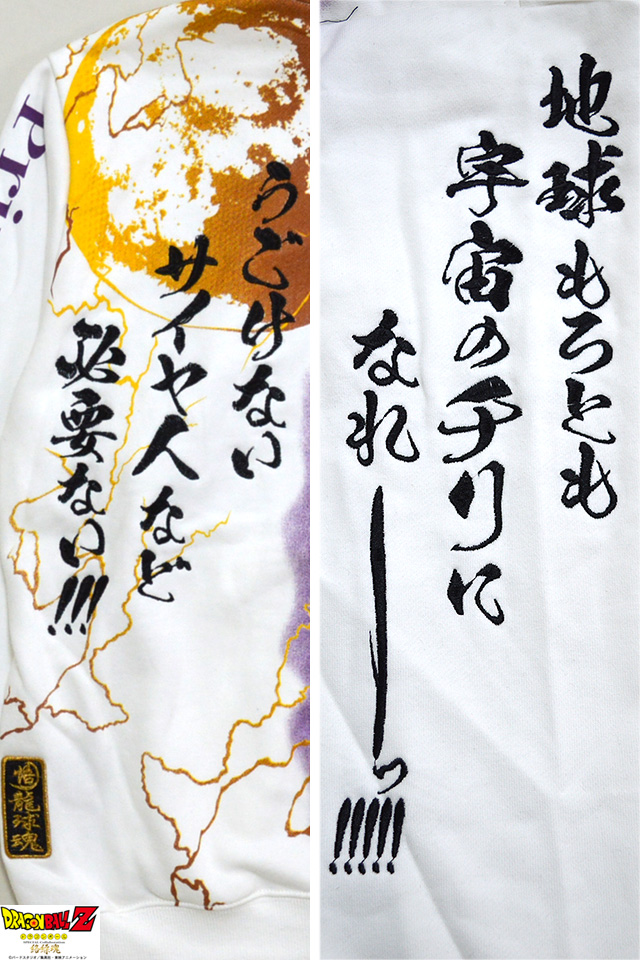 Pri
うごけない
サイヤ人など
必要ない!!!
地球もろとも
宇宙のチリに
なれーっ!!!!!
悟
龍球魂
DRAGONBALL Z
ドラゴンボール
SPECIAL Collaboration
絡繰魂
©バードスタジオ/集英社・東映アニメーション